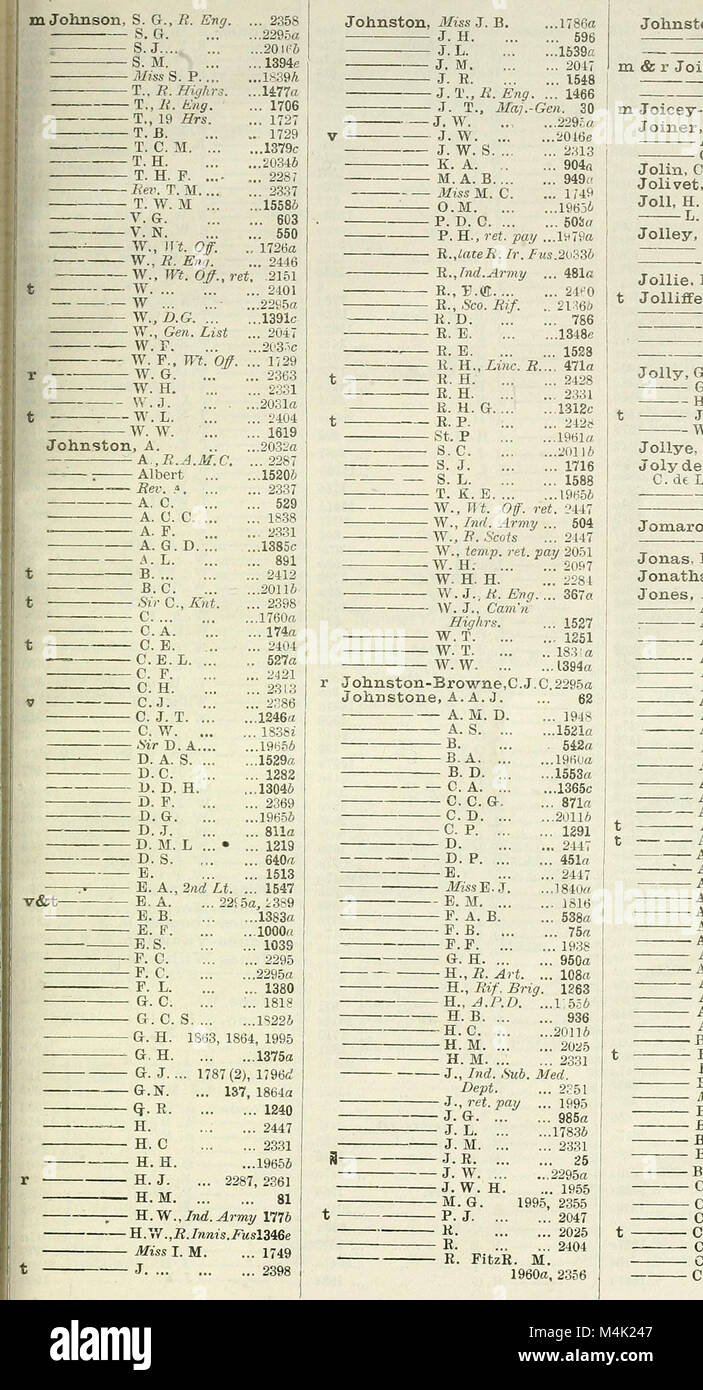 m Johnson, S. G., R. Eng. ... 2358
——— S. G. ... ...2295a
——— S. J.... ...2016b
——— S. M. ... ...1394e
——— Miss S. P.... ...1839b
——— T., R. Highrs. ...1477a
——— T., R. Eng. ... 1706
——— T., 19 Hrs. ... 1727
——— T. B. ... .. 1729
——— T. C. M. ... ...1379c
——— T. H. ... ...2034b
——— T. H. F. ... ... 2287
——— Rev. T. M.... ... 2337
——— T. W. M ... ...1558b
——— V. G. ... ... 603
——— V. N. ... ... 550
——— W., Wt. Off. .. 1726a
——— W., R. Eng. ... 2446
——— W., Wt. Off., ret. 2151
t ——— W. ... ... ... 2401
——— W ... ... ...2295a
——— W., D.G. ... ...1391c
——— W., Gen. List ... 2047
——— W. F. ... ...2035c
——— W. F., Wt. Off. ... 1729
r ——— W. G. ... ... 2363
——— W. H. ... ... 2331
——— W. J. ... ...2031a
t ——— W. L. ... ... 2404
——— W. W. ... ... 1619
Johnston, A. .. ...2032a
——— A., R.A.M.C. ... 2287
——— Albert ... ...1520b
——— Rev. A. ... ... 2337
——— A. C. ... ... 529
——— A. C. C. ... ... 1838
——— A. F. ... ... 2331
——— A. G. D. ... ...1385c
——— A. L. ... ... 891
t ——— B. ... ... ... 2412
——— B. C. ... ...2011b
t ——— Sir C., Knt. ... 2398
——— C. ... ... ...1760a
——— C. A. ... ... 174a
t ——— C. E. ... ... 2404
——— C. E. L. ... ... 527a
——— C. F. ... ... 2421
——— C. H. ... ... 2313
v ——— C. J. ... ... 2386
——— C. J. T. ... ...1246a
——— C. W. ... ... 1838i
——— Sir D. A.... ...1965b
——— D. A. S. ... ...1529a
——— D. C. ... ... 1282
——— D. D. H. ...1304b
——— D. F. ... ... 2369
——— D. G. ... ...1965b
——— D. J. ... ... 811a
——— D. M. L ... • ... 1219
——— D. S. ... ... 640a
——— E. ... ... 1513
——— E. A., 2nd Lt. ... 1547
v&t ——— E. A. ... 2295a, 2389
——— E. B. ... ...1383a
——— E. F. ... ...1000a
——— E. S. ... ... 1039
——— F. C. ... ... 2295
——— F. C. ... ...2295a
——— F. L. ... ... 1380
——— G. C. ... ... 1818
——— G. C. S. ... ...1822b
——— G. H. 1863, 1864, 1995
——— G. H. ... ...1375a
——— G. J. ... 1787 (2), 1796d
——— G.N. ... 137, 1864a
——— G. R. ... ... 1240
——— H. ... ... 2447
——— H. C ... ... 2331
——— H. H. ... ...1965b
r ——— H. J. ... 2287, 2361
——— H. M. ... ... 81
——— H.W., Ind. Army 177b
——— H.W., R.Innis.Fus1346e
——— Miss I. M. ... 1749
t ——— J. ... ... ... 2398
Johnston, Miss J. B. ...1786a
——— J. H. ... ... 596
——— J. L. ... ...1539a
——— J. M. ... ... 2047
——— J. R. ... ... 1548
——— J. T., R. Eng. ... 1466
——— J. T., Maj.-Gen. 30
——— J. W. .. ...2295a
v ——— J. W. ... ...2016e
——— J. W. S. ... ... 2313
——— K. A. .. ... 904a
——— M. A. B. ... ... 949a
——— Miss M. C. ... 1749
——— O. M. ... ...1965b
——— P. D. C. ... ... 503a
——— P. H., ret. pay ...1979a
——— R., late R. Ir. Fus.2033b
——— R., Ind. Army ... 481a
——— R., F.C. ... ... 2460
——— R., Sco. Rif. .. 2136b
——— R. D. ... ... 786
——— R. E. ... ...1348e
——— R. E. ... ... 1523
——— R. H., Linc. R.... 471a
t ——— R. H. ... ... 2428
——— R. H. ... ... 2331
——— R. H. G. ... ...1312c
t ——— R. P. ... ... 2428
——— St. P ... ...1961a
——— S. C. ... ...2011b
——— S. J. ... ... 1716
——— S. L. ... ... 1588
——— T. K. E. ... ...1965b
——— W., Wt. Off. ret. 2447
——— W., Ind. Army ... 504
——— W., R. Scots ... 2447
——— W., temp. ret. pay 2051
——— W. H. ... ... 2097
——— W. H. H. ... 2284
——— W. J., R. Eng. ... 367a
——— W. J., Cam'n
Highrs. ... 1527
——— W. T. ... ... 1251
——— W. T. ... ..1831a
——— W. W. ... ...1394a
r Johnston-Browne, C.J.C, 2295a
Johnstone, A. A. J. ... 62
——— A. M. D. ... 1948
——— A. S. ... ...1521a
——— B. ... ... 542a
——— B. A. ... ...1960a
——— B. D. ... ...1553a
——— C. A. ... ...1365c
——— C. C. G. ... 871a
——— C. D. ... ...2011b
——— C. P. ... ... 1291
——— D. ... ... 2447
——— D. P. ... ... 451a
——— E. ... ... 2447
——— Miss E. J. ...1840a
——— E. M. ... ... 1816
——— F. A. B. ... 538a
——— F. B. ... ... 75a
——— F. F. ... ... 1938
——— G. H. ... ... 950a
——— H., R. Art. ... 108a
——— H., Rif. Brig. 1263
——— H., A.P.D. ...1555b
——— H. B. ... ... 936
——— H. C. ... ...2011b
——— H. M. ... ... 2025
——— H. M. ... ... 2331
——— J., Ind. Sub. Med.
Dept. ... 2351
——— J., ret. pay ... 1995
——— J. G. ... ... 985a
——— J. L. ... ...1783b
——— J. M. ... ... 2331
——— J. R. ... ... 25
——— J. W. ... ...2295a
——— J. W. H. ... 1955
——— M. G. 1995, 2355
t ——— P. J. ... ... 2047
——— R. ... ... 2025
——— R. ... ... 2404
——— R. FitzR. M.
1960a, 2356
m & r Joi
m Joicey-
Joiner,
Jolin, C
Jolivet,
Joll, H.
——— L.
Jolley,
Jollie,
t Jolliffe
Jolly, G
——— G
——— H
t ——— J
——— W
Jollye,
Joly de
C. de L
Jomaro
Jonas,
Jonatha
Jones,
alamy
Image ID: M4K247
www.alamy.com